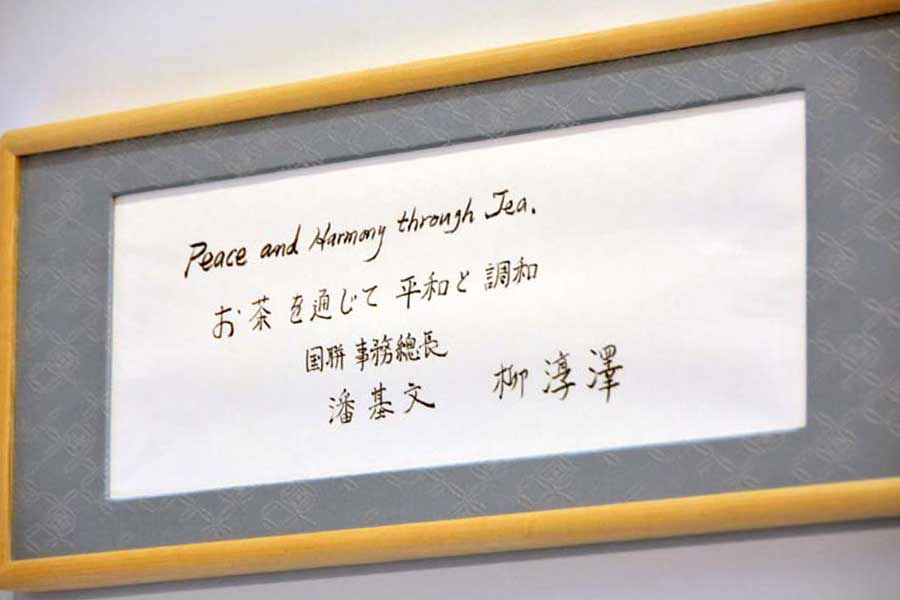 Peace and Harmony through Tea.
お茶を通じて平和と調和
国聯事務總長
潘基文 柳淳澤